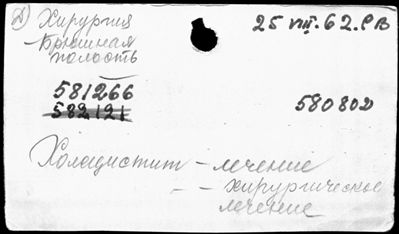 Д) Хирургия
25 VIII. 62. РВ
- Брюшная
полость
581266
582121
580802
Холецистит - лечение
- - хирургическое
лечение